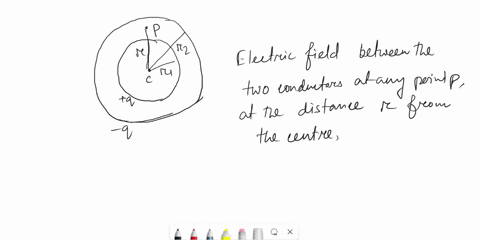 P
r
r2
C
r1
+q
-q
Electric field between the
two conductors at any point P,
at the distance r from
the centre,